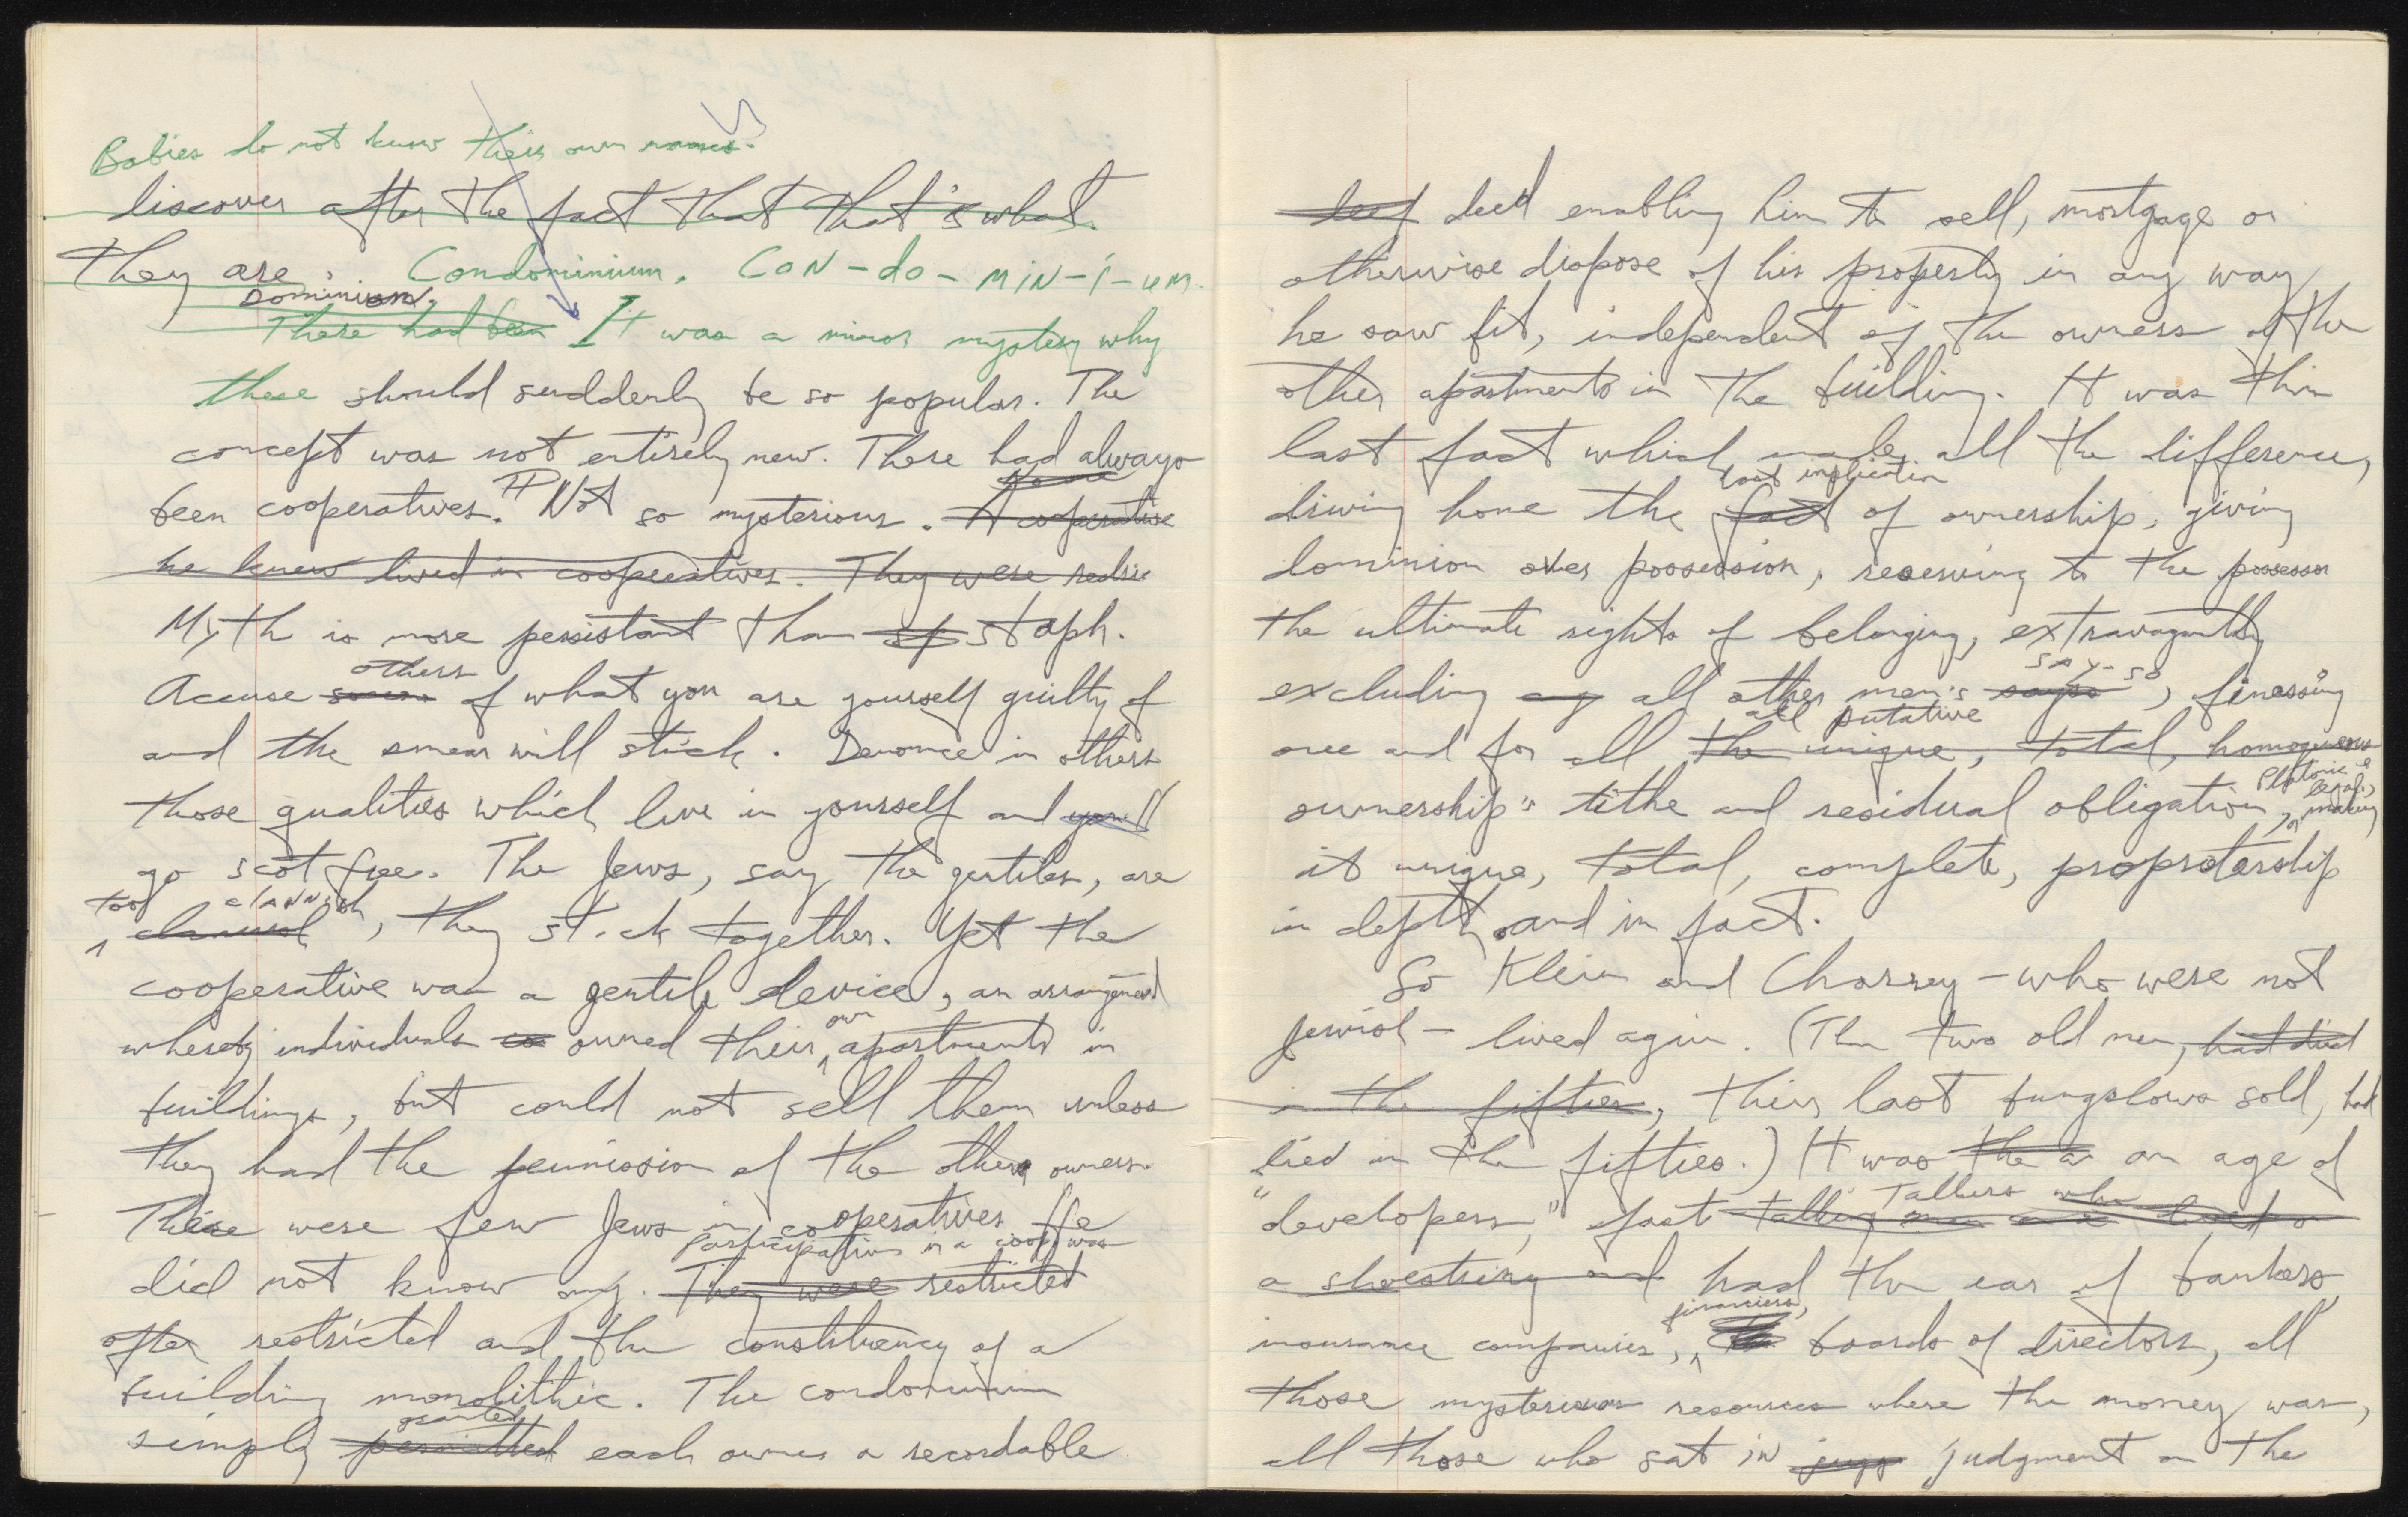 Babies do not know their own names.
discover after the fact that that's what
they are. Condominium. CoN-do-MiN-i-um.
Dominion.
There had been It was a minor mystery why
these should suddenly be so popular. The
concept was not entirely new. There had always
been cooperatives. Not so mysterious. A cooperative
he knew lived in cooperatives. They were
Myth is more persistant than staph.
others
Accuse of what you are yourself guilty of
and the smear will stick. Denounce in others
those qualities which live in yourself and you'll
go scot free. The Jews, say the gentiles, are
too clannish
, they stick together. Yet the
cooperative was a gentile device, an arrangement
own
whereby individuals owned their apartments in
buildings, but could not sell them unless
they had the permission of the other owners.
There were few Jews in cooperatives. He
participation in a coop was
did not know any. They were restricted
often restricted and the constituency of a
building monolithic. The condominium
granted
simply permitted each owner a recordable
deed enabling him to sell, mortgage or
otherwise dispose of his property in any way
he saw fit, independent of the owners of the
other apartments in the building. It was this
last fact which made all the difference,
last implication
driving home the fact of ownership, giving
dominion over possession, reserving to the possessor
the ultimate rights of belonging, extravagantly
say-so
excluding all other men's sayso, finessing
all putative
once and for all the unique, total, homogeneous
Platonic &
legal,
ownership" tithe and residual obligation, making
it unique, total, complete, propretership
in depth and in fact.
So Klein and Charney - who were not
Jewish - lived again. (The two old men, had died
in the fifties, their last bungalows sold, had
died in the fifties.) It was the a an age of
Talkers who
"developers," fast talking men
a shoestring and had the ear of bankers,
financiers,
insurance companies, boards of directors, all
those mysterious resources where the money was,
all those who sat in judgment on the